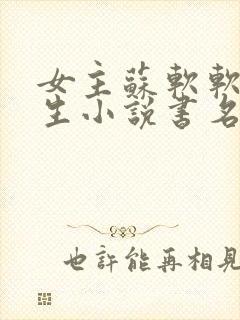 女主蘇軟軟
生小說書名
也許能再相見